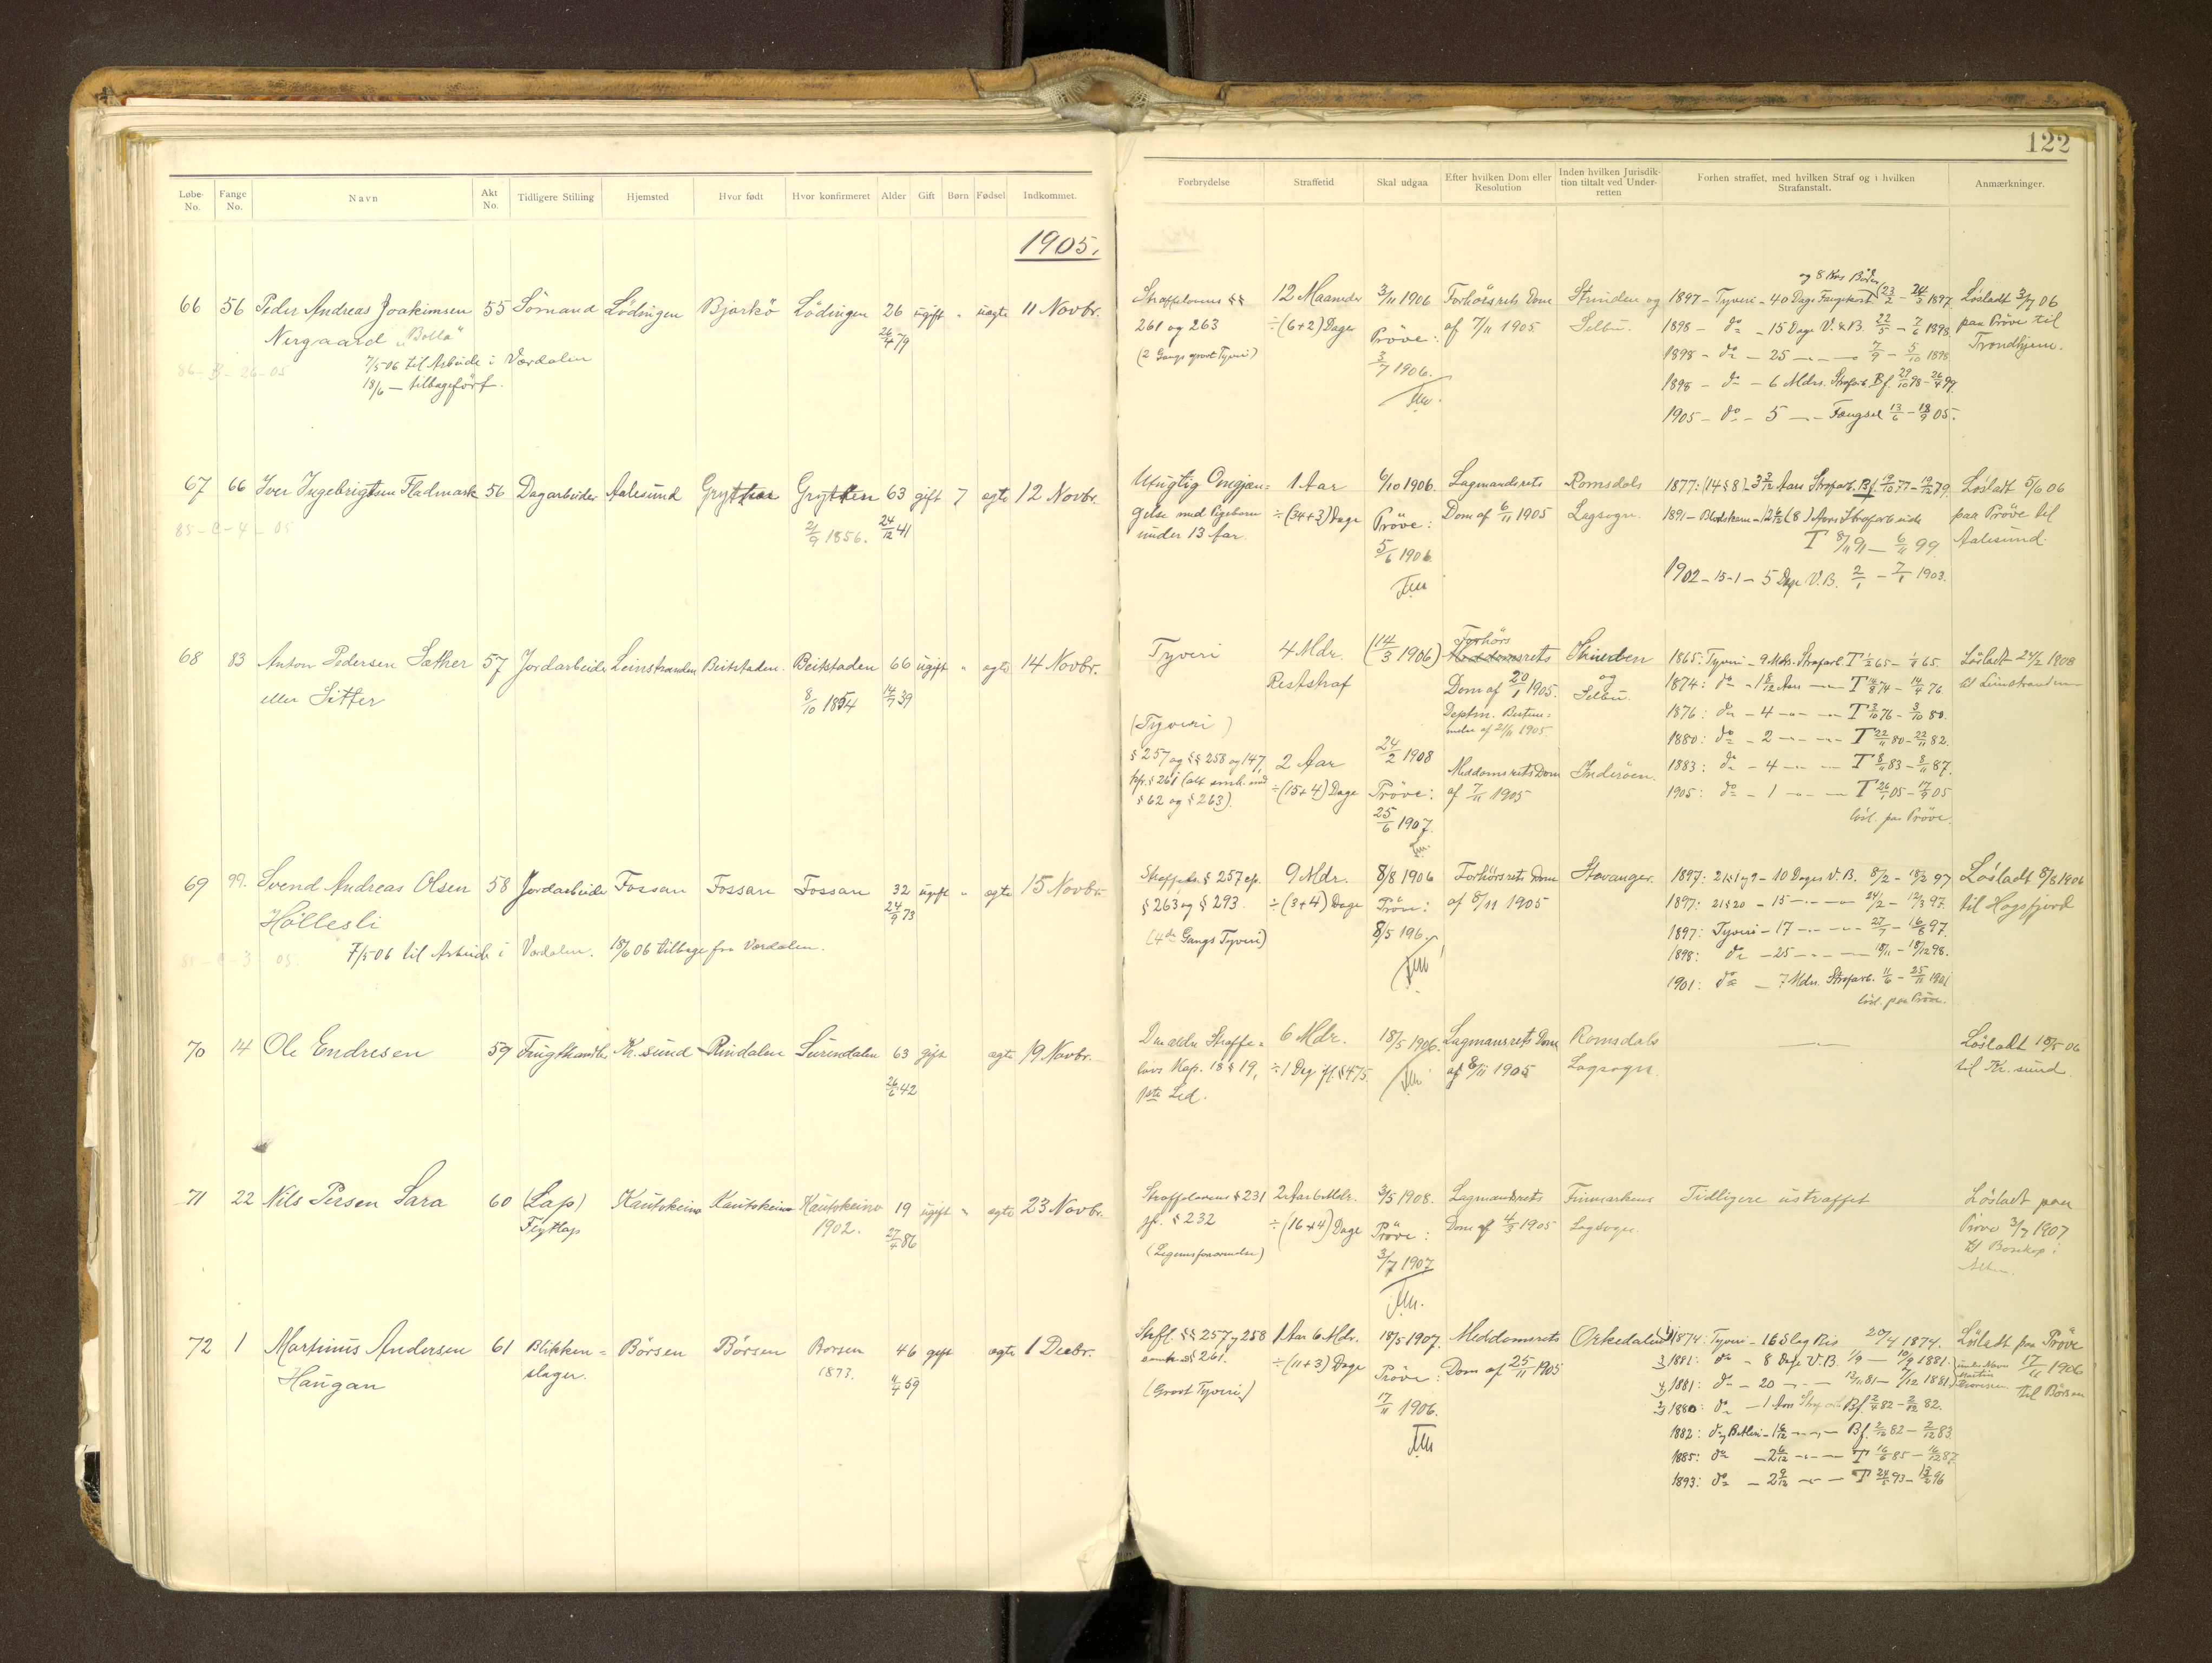 122
Løbe- No. Fange No. Navn Akt No. Tidligere Stilling Hjemsted Hvor født Hvor konfirmeret Alder Gift Børn Fødsel Indkommet.
Forbrydelse Straffetid Skal udgaa Efter hvilken Dom eller Resolution Inden hvilken Jurisdiktion tiltalt ved Underretten Forhen straffet, med hvilken Straf og i hvilken Strafanstalt. Anmærkninger.
1905.
66 56 Peder Andreas Joakimsen 55 Sömand Lödingen Bjarkö Lödingen 26 ugift " uagte 11 Novbr.
Nergaard "Bolla" 26/4 79
7/5 06 til Arbeide i Værdalen
86-B-26-05
18/6 — tilbageført.
Straffelovens §§ 12 Maaneder 3/11 1906 Forhörsrets Dom Strinden og
261 og 263 ÷(6+2) Dage Pröve: af 7/11 1905 Selbu.
(2 Gangs grovt Tyveri) 3/7 1906.
og 8 Krs Böder
1897 - Tyveri - 40 Dage Fangekost (23/2 - 24/3 1897.
1898 - do - 15 Dage V. & B. 22/5 - 7/6 1898.
1898 - do - 25 - - - 7/9 - 5/10 1898
1898 - do - 6 Mdrs. Strafarb. Bf. 29/10 98 - 26/4 99.
1905 - do - 5 - - Fængsel 13/6 - 18/9 05.
Lösladt 3/7 06
paa Pröve til
Trondhjem.
67 66 Iver Ingebrigtsen Fladmark 56 Dagarbeider Aalesund Grytten Grytten 63 gift 7 ægte 12 Novbr.
85-C-4-05 2/9 1856. 24/12 41
Utugtig Omgjæn- 1 Aar 6/10 1906. Lagmandsrets Romsdals
gelse med Pigebørn ÷(34+3) Dage Pröve: Dom af 6/11 1905 Lagsogn.
under 13 Aar. 5/6 1906
1877: (14 § 8) - 3 3/12 Aars Strafarb. Bf. 19/10 77 - 19/12 79.
1891 - Blodskam - 12 6/12 (8) Aars Strafarbeide
T 8/11 91 - 6/11 99
1902 - 15-1 - 5 Dage V.B. 2/1 - 7/1 1903.
Lösladt 5/6 06
paa Pröve til
Aalesund.
68 83 Anton Pedersen Sæther 57 Jordarbeider Leinstranden Beitstaden Beitstaden 66 ugift " ægte 14 Novbr.
eller Sitter 8/10 1854 14/7 39
Tyveri 4 Mdr. (14/3 1906) Forhörs Meddomsrets Strinden
Reststraf Dom af 20/1 1905. og Selbu.
Deptm. Bestem-
melse af 21/11 1905.
(Tyveri)
§ 257 og §§ 258 og 147, 2 Aar 24/2 1908 Meddomsrets Dom Inderöen.
§ 62 og § 263). ÷(15+4) Dage Pröve: af 7/11 1905
25/6 1907.
1865: Tyveri - 9 Mdr. Strafarb. T 1/2 65 - 1/11 65.
1874: do - 1 8/12 Aars - - T 14/8 74 - 14/4 76
1876: do - 4 - - - T 3/10 76 - 3/10 80.
1880: do - 2 - - - T 22/11 80 - 22/11 82.
1883: do - 4 - - - T 8/11 83 - 8/11 87.
1905: do - 1 - - - T 26/1 05 - 17/9 05
lösl. paa Pröve.
Lösladt 24/2 1908
til Leinstranden
69 99. Svend Andreas Olsen 58 Jordarbeider Fossan Fossan Fossan 32 ugift " ægte 15 Novbr.
Höllesli 24/9 73
85-C-3-05 7/5 06 til Arbeide i Værdalen. 18/6 06 tilbage fra Værdalen.
Straffels. § 257 cp. 9 Mdr. 8/8 1906 Forhörsrets Dom Stavanger.
§ 263 og § 293 ÷(3+4) Dage Pröve: af 8/11 1905
(4de Gangs Tyveri) 8/5 196.
1897: 21 § 1 og 9 - 10 Dages V. B. 8/2 - 18/2 97
1897: 21 § 20 - 15 - - - 24/2 - 12/3 97.
1897: Tyveri - 17 - - - 27/7 - 16/8 97.
1898: do - 25 - - - 18/11 - 18/12 98.
1901: do - 7 Mdr. Strafarb. 11/6 - 25/11 1901
lösl. paa Pröve.
Lösladt 8/8 1906
til Högsfjord
70 14 Ole Endresen 59 Frugthandler Kr. sund Rindalen Surendalen 63 gift ægte 19 Novbr.
26/6 42
Den ældre Straffe- 6 Mdr. 18/5 1906. Lagmansrets Dom Romsdals
lovs Kap. 18 § 19, ÷ 1 Dag jf. § 475. af 6/11 1905 Lagsogn.
1ste Led.
Lösladt 18/5 06
til Kr. sund.
71 22 Nils Persen Sara 60 (Lap) Kautokeino Kautokeino Kautokeino 19 ugift " ægte 23 Novbr.
Flytlap 1902. 27/4 86
Straffelovens § 231 2 Aar 6 Mdr. 3/5 1908. Lagmandsrets Finmarkens Tidligere ustraffet
jf. § 232 ÷(16+4) Dage Pröve: Dom af 4/9 1905 Lagsogn.
(Legemsfornærmelse) 3/7 1907
Lösladt paa
Pröve 3/7 1907
til Bossekop i
Alten.
72 1 Martinus Andersen 61 Blikken- Börsen Börsen Börsen 46 gift ægte 1 Decbr.
Haugan slager. 1873. 4/4 59
Strfl. §§ 257 og 258 1 Aar 6 Mdr. 18/5 1907. Meddomsrets Orkedalens
smh. § 261. ÷(11+3) Dage Pröve: Dom af 25/11 1905
(Grovt Tyveri) 17/11 1906.
1874: Tyveri - 16 Slag Ris 20/4 1874.
1881: do - 8 Dage V.B. 1/9 - 10/9 1881.
1881: do - 20 - - - 12/11 81 - 7/12 1881)
1880: do - 1 Aars Strafarb. Bf. 2/4 82 - 2/12 82.
1882: do og Betleri - 1 6/12 - - - Bf. 2/10 82 - 2/12 83
1885: do - 2 6/12 - - - T 16/6 85 - 16/12 87
1893: do - 2 9/12 - - - T 24/5 93 - 13/2 96
under Navn Martin
Lösladt paa Pröve
17/11 1906
til Börsen